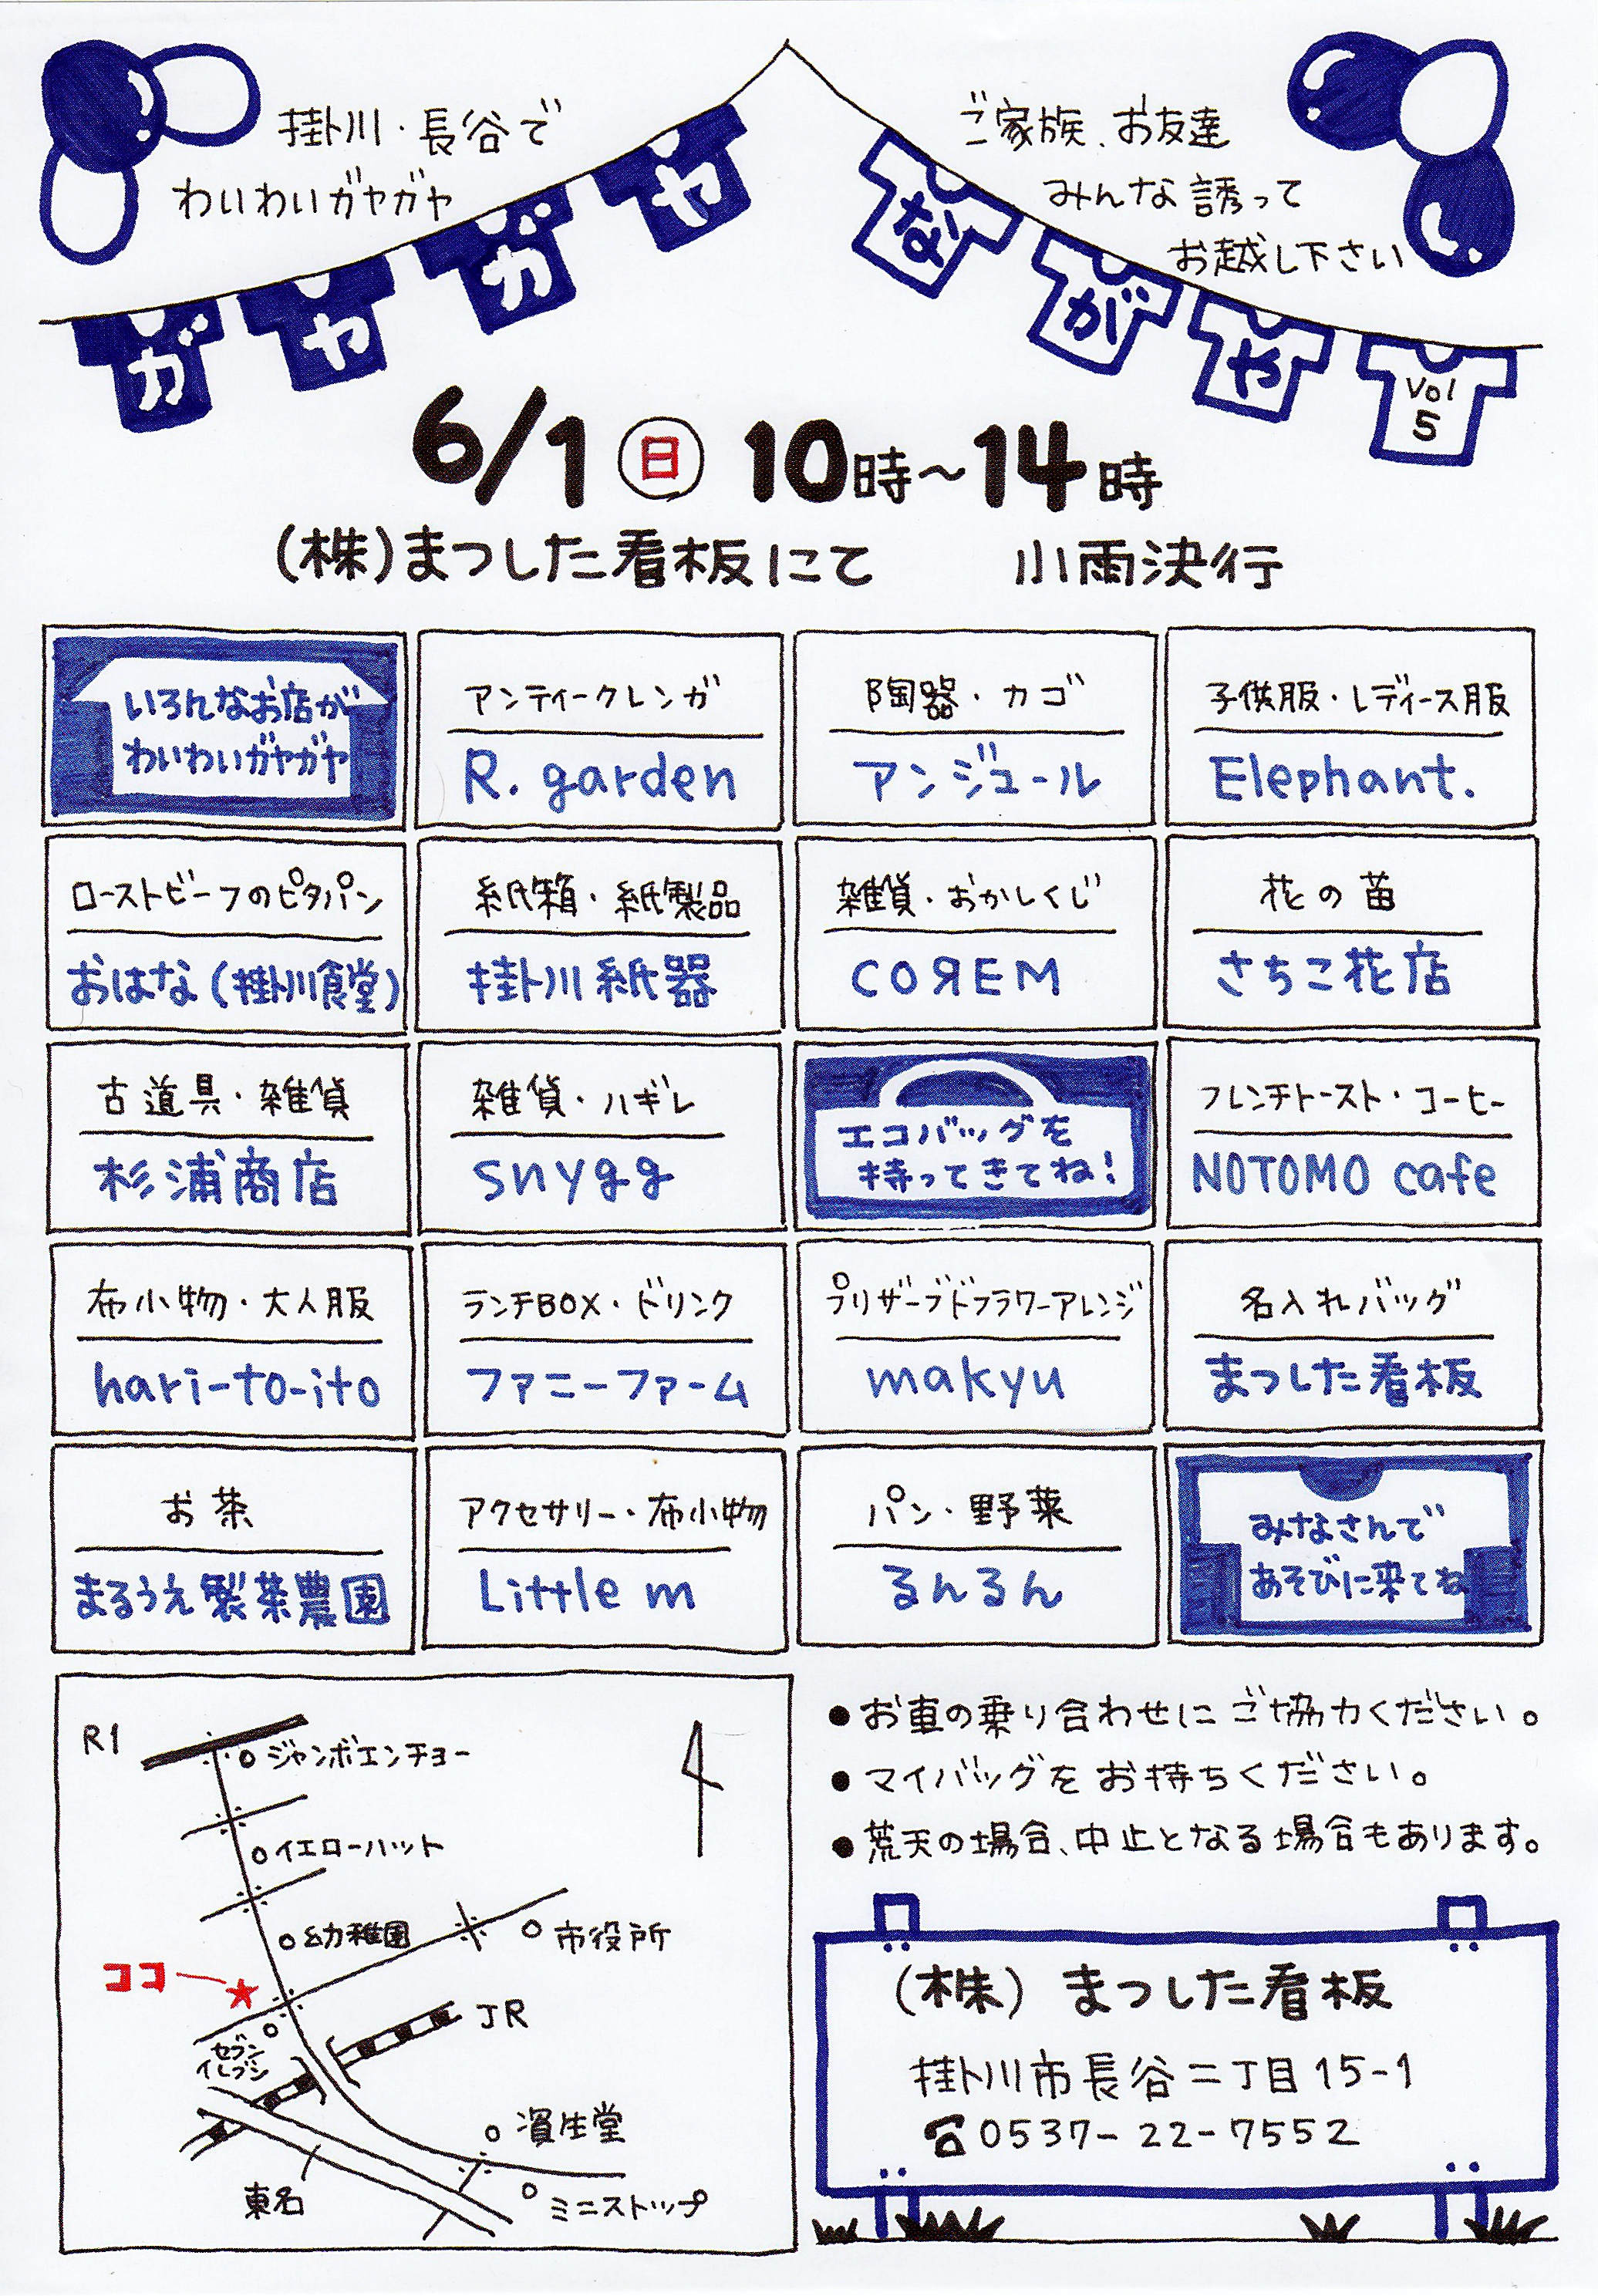 掛川・長谷で
わいわいガヤガヤ
ご家族、お友達
みんな誘って
お越し下さい
ガヤガヤ
ながや
Vol
5
6/1 日 10時～14時
(株)まつした看板にて 小雨決行
いろんなお店が
わいわいガヤガヤ
アンティークレンガ
R. garden
陶器・カゴ
アンジュール
子供服・レディース服
Elephant.
ローストビーフのピタパン
おはな(掛川食堂)
紙箱・紙製品
掛川紙器
雑貨・おかしくじ
COЯEM
花の苗
さちこ花店
古道具・雑貨
杉浦商店
雑貨・ハギレ
snygg
エコバッグを
持ってきてね!
フレンチトースト・コーヒー
NOTOMO cafe
布小物・大人服
hari-to-ito
ランチBOX・ドリンク
ファニーファーム
プリザーブドフラワーアレンジ
makyu
名入れバッグ
まつした看板
お茶
まるうえ製茶農園
アクセサリー・布小物
Little m
パン・野菜
るんるん
みなさんで
あそびに来てね
R1
ジャンボエンチョー
イエローハット
幼稚園
市役所
ココ
JR
セブン
イレブン
資生堂
東名
ミニストップ
●お車の乗り合わせにご協力ください。
●マイバッグをお持ちください。
●荒天の場合、中止となる場合もあります。
(株)まつした看板
掛川市長谷二丁目15-1
☎0537-22-7552